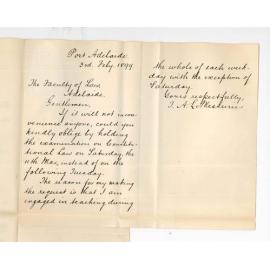 Port Adelaide
3rd. Feby. 1899
The Faculty of Law,
Adelaide.
Gentlemen,
If it will not incon-
venience anyone, could you
kindly oblige by holding
the examination on Constitu-
tional Law on Saturday, the
11th Mar, instead of on the
following Tuesday.
The reason for my making
the request is that I am
engaged in teaching during
the whole of each week-
day with the exception of
Saturday.
Yours respectfully,
T. A. G.